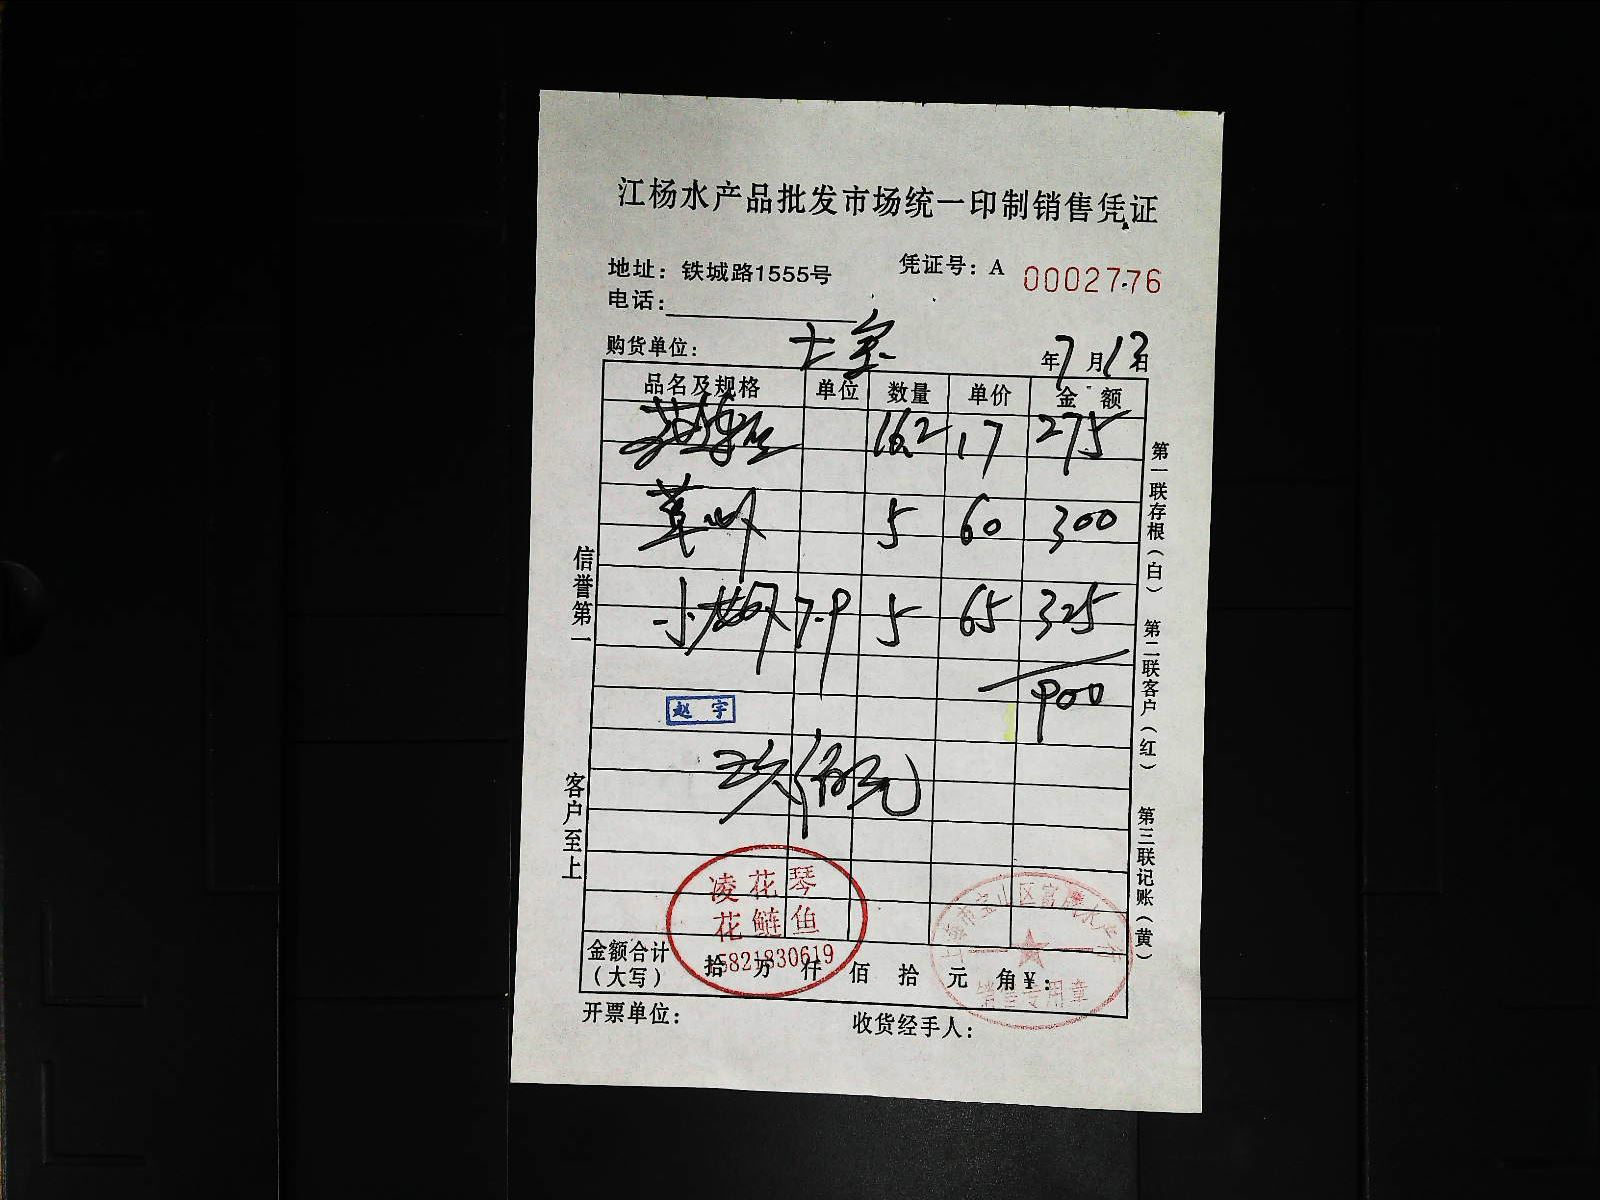 江杨水产品批发市场统一印制销售凭证
地址：铁城路1555号 凭证号：A 0002776
电话：
购货单位： 七宝 年7月13日
品名及规格 单位 数量 单价 金额
16.2 17 275
草虾 5 60 300
小 7.9 5 65 325
900
赵宇
玖佰元
凌花琴
花鲢鱼
15821830619
上海市宝山区富 水产行
销售专用章
金额合计（大写） 拾 万 仟 佰 拾 元 角 ¥：
开票单位： 收货经手人：
信誉第一
客户至上
第一联存根（白）
第二联客户（红）
第三联记账（黄）